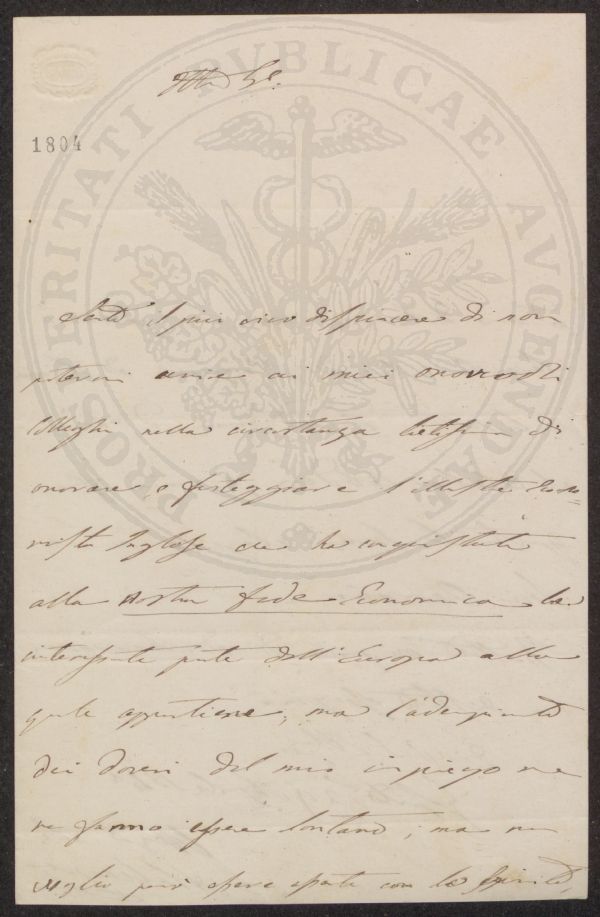 PROSPERITATI PVBLICAE AVGENDAE
1804
Sento il più vivo dispiacere di non
potermi unire ai miei onorevoli
Colleghi nella circostanza lietissima di
onorare, e festeggiare l'illustre Econo=
mista Inglese che ha conquistata
alla nostra fede Economica la
interessante parte dell'Europa alla
quale appartiene; ma l'adempimento
dei doveri del mio impiego me
ne fanno essere lontano; ma non
voglio però essere con lo spirito,